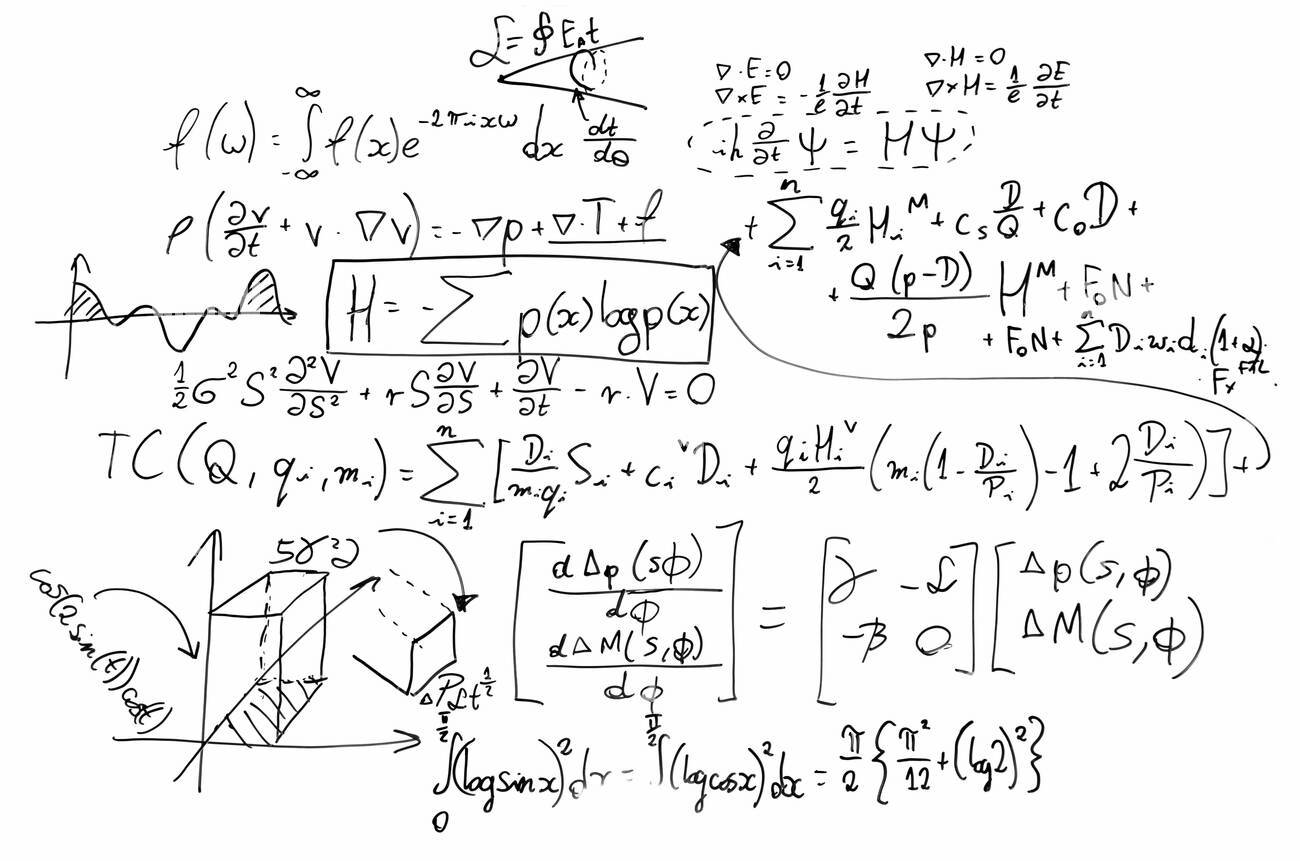 ℒ = ∮ E₀t
∇·E=0
∇×E = -1/e ∂H/∂t
∇·H=0
∇×H = 1/e ∂E/∂t
f(ω) = ∫_{-∞}^{∞} f(x)e^{-2πixω} dx
dt/dθ
iħ ∂/∂t Ψ = HΨ
ρ(∂v/∂t + v·∇v) = -∇p + ∇·T + f
+ ∑_{i=1}^{n} q_i/2 H_i^M + C_s D/Q + C_o D +
+ Q(p-D)/2p H^M + F_o N +
+ F_o N + ∑_{i=1}^{n} D_i w_i d_i (1+α)
H = -∑ p(x) log p(x)
1/2 σ² S² ∂²V/∂S² + rS ∂V/∂S + ∂V/∂t - r·V = 0
TC(Q, q_i, m_i) = ∑_{i=1}^{n} [D_i/(m_i q_i) S_i + c_i^v D_i + q_i H_i^v/2 (m_i(1 - D_i/P_i) - 1 + 2 D_i/P_i)] +
5γ²∂
cos(2sin(t))cos(t)
ΔPℒt^{1/2}
[dΔp(sϕ)/dϕ
dΔM(s,ϕ)/dϕ] = [γ -ℒ
-β 0] [Δp(s,ϕ)
ΔM(s,ϕ)
∫_0^{π/2} (log sin x)² dx = ∫^{π/2} (log cos x)² dx = π/2 {π²/12 + (log 2)²}